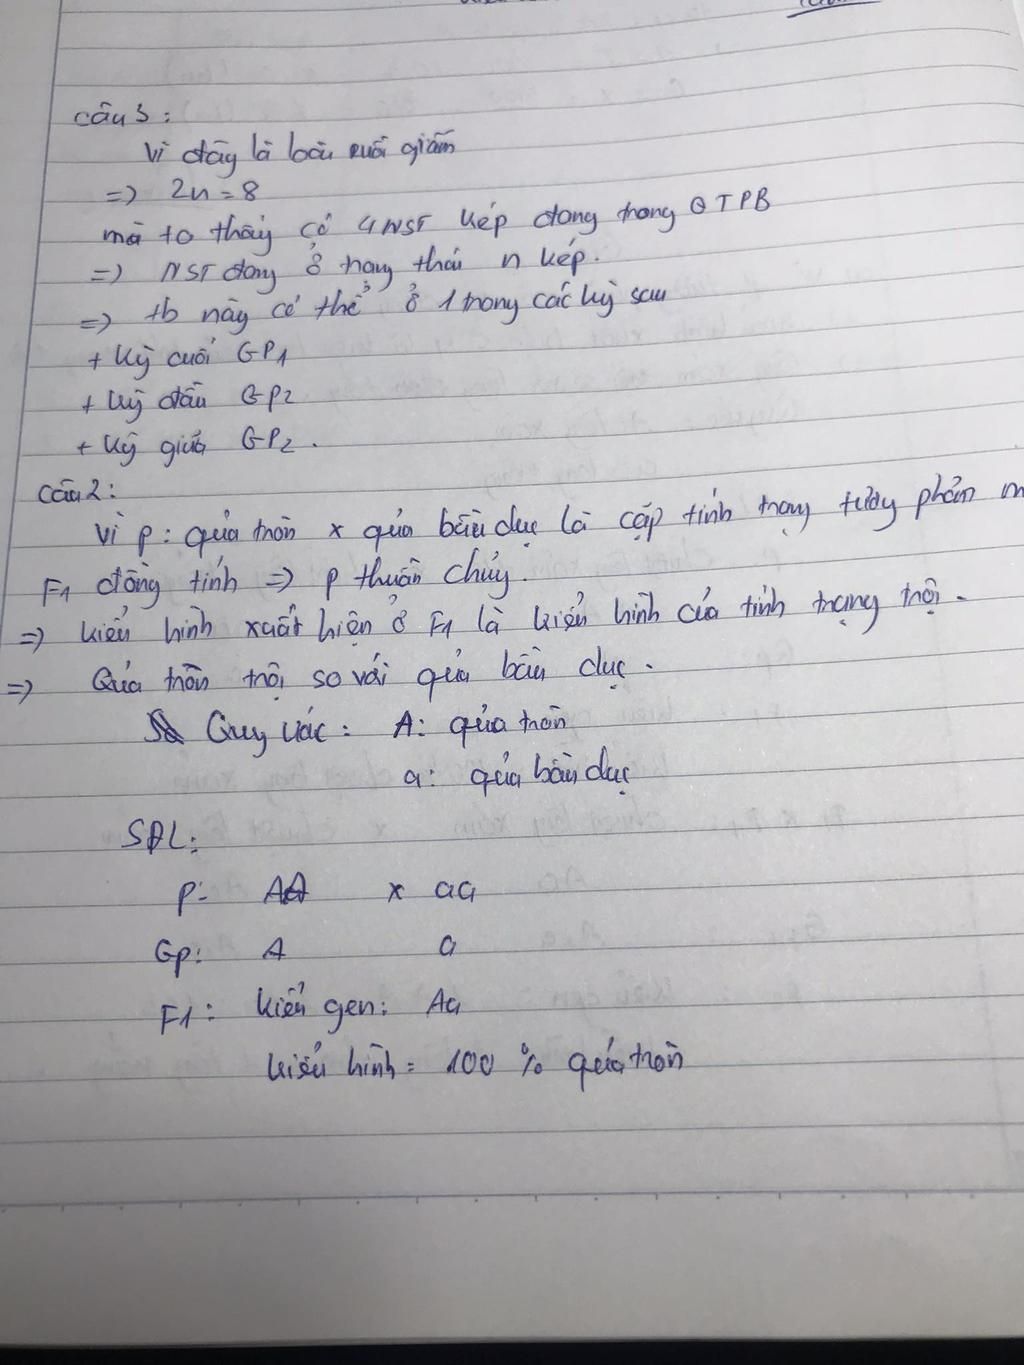 Câu 3:
Vì đây là loài ruồi giấm
=> 2n = 8
mà ta thấy có 4 NST kép đang trong QTPB
=> NST đang ở trạng thái n kép.
=> tb này có thể ở 1 trong các kỳ sau
+ Kỳ cuối GP1
+ Kỳ đầu GP2
+ Kỳ giữa GP2.
Câu 2:
Vì P: quả tròn x quả bầu dục là cặp tính trạng tương phản m
F1 đồng tính => P thuần chủng.
=> kiểu hình xuất hiện ở F1 là kiểu hình của tính trạng trội.
=> Quả tròn trội so với quả bầu dục.
Quy ước: A: quả tròn
a: quả bầu dục
SĐL:
P: AA x aa
Gp: A a
F1: Kiểu gen: Aa
kiểu hình = 100 % quả tròn